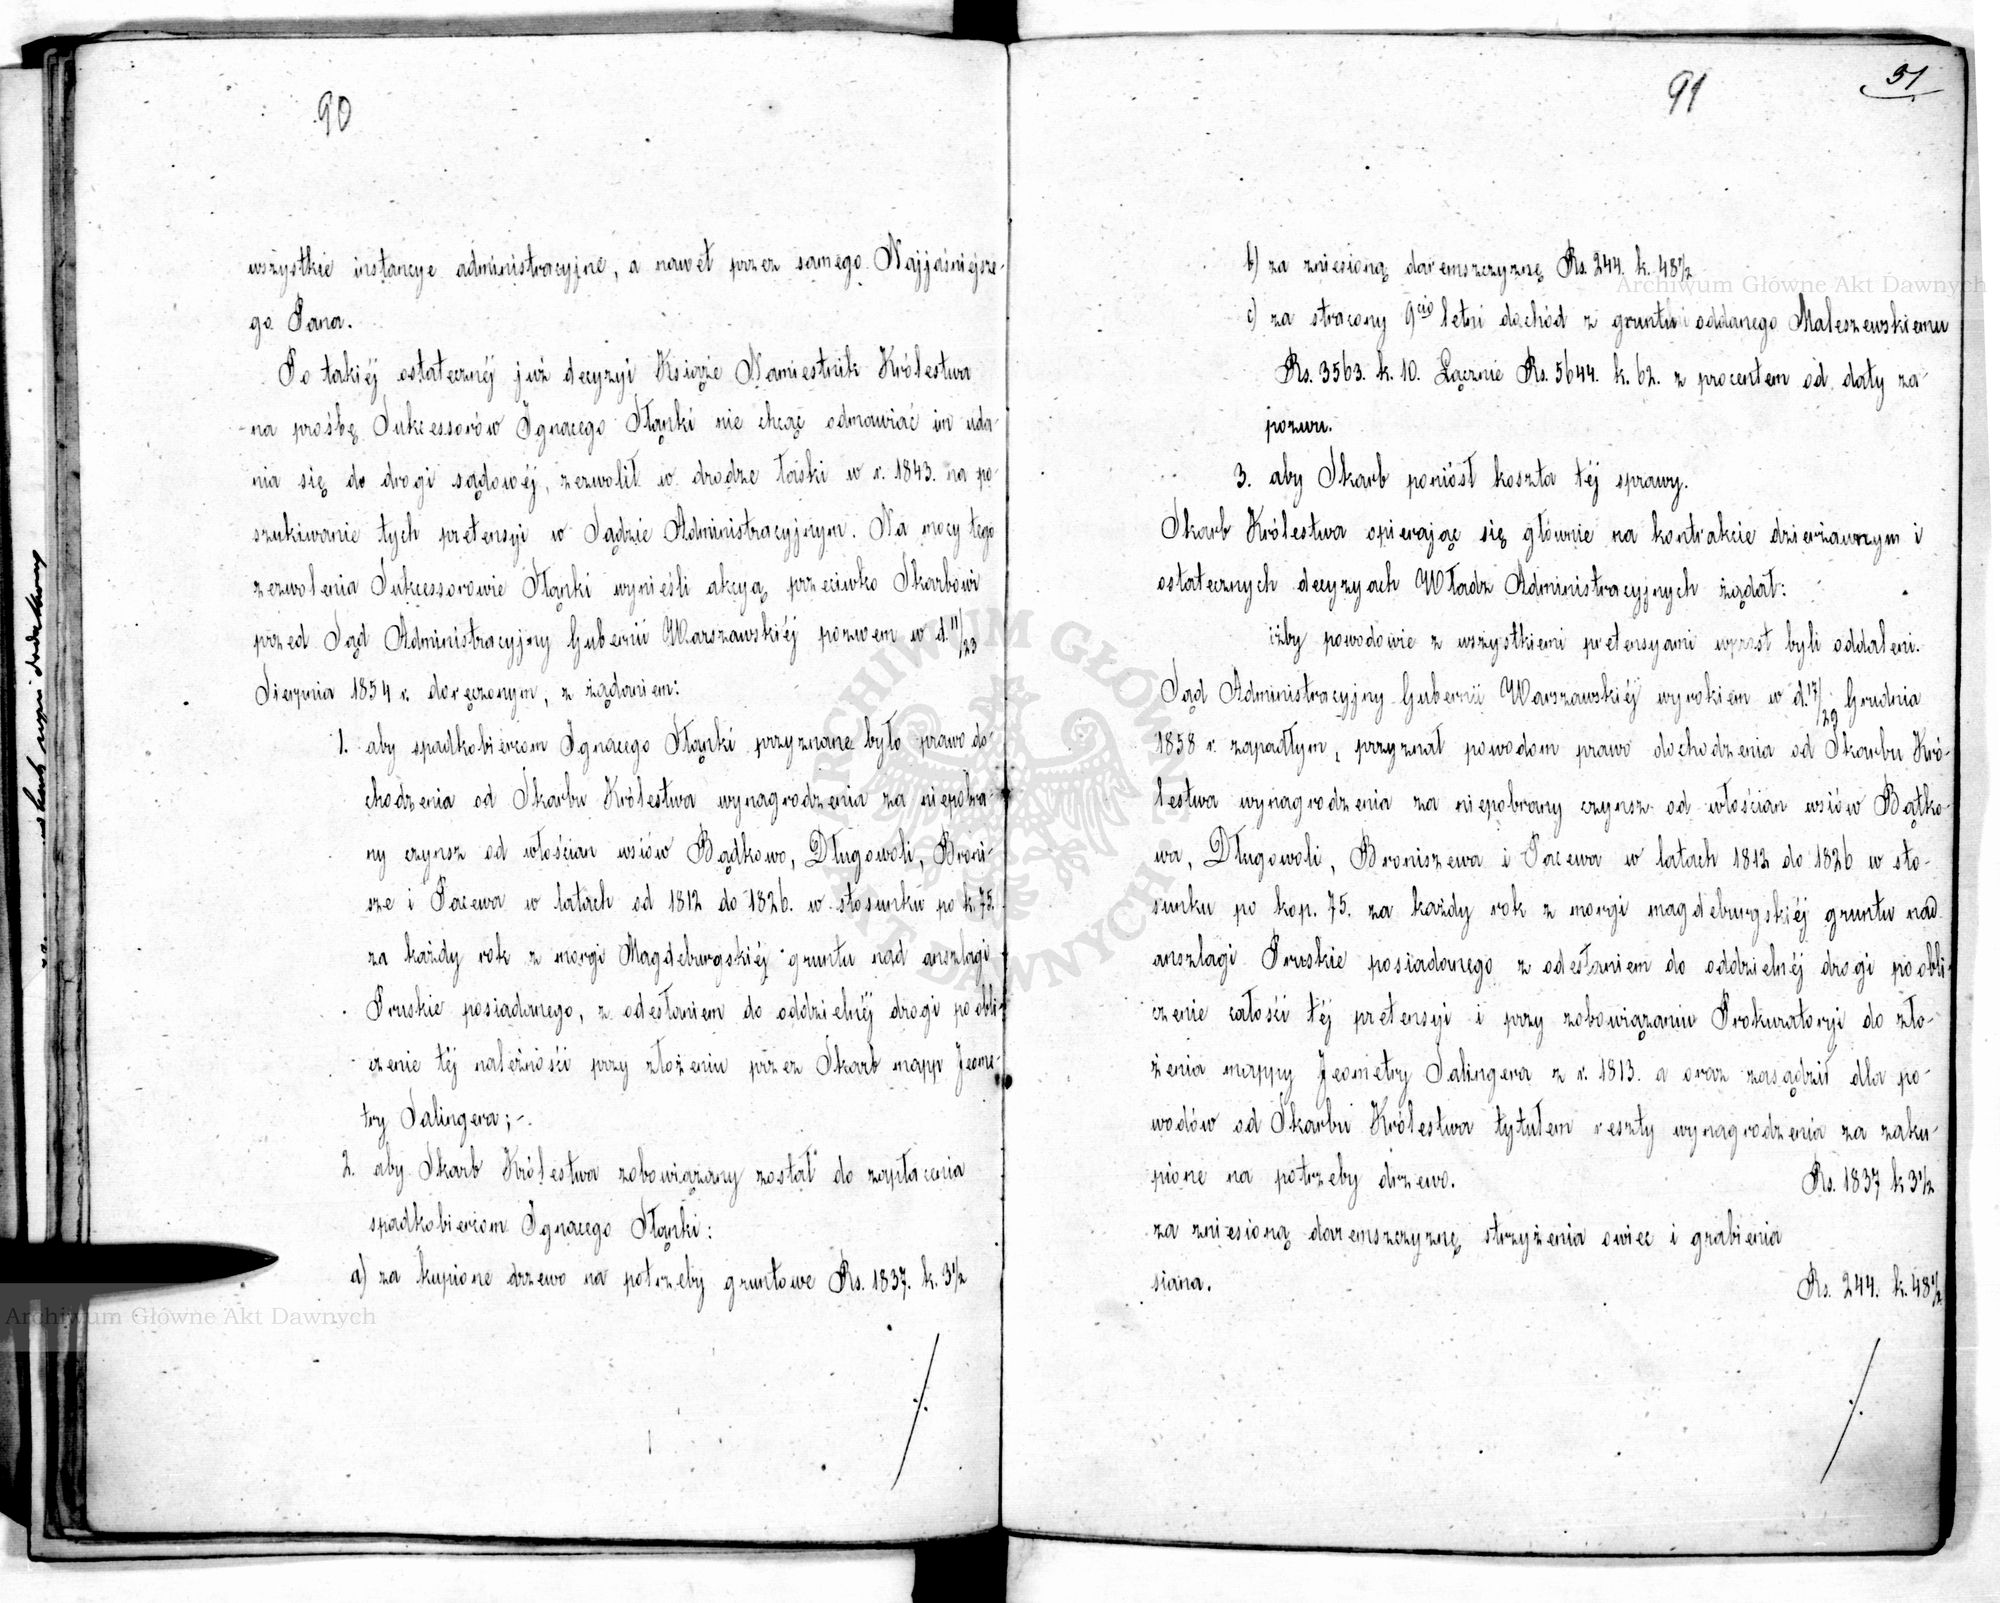 90
wszystkie instancye administracyjne, a nawet przez samego Najjaśniejsze-
go Pana.
Po takiéj ostatecznéj już decyzyi Książe Namiestnik Królestwa
na prośbę Sukcessorów Ignacego Stąnki nie chcąc odmawiać im uda-
nia się do drogi sądowéj, zezwolił w drodze łaski w r. 1843. na po-
szukiwanie tych pretensyi w Sądzie Administracyjnym. Na mocy tego
zezwolenia Sukcessorowie Stąnki wynieśli akcyą przeciwko Skarbowi
przed Sąd Administracyjny Gubernii Warszawskiéj pozwem w d. 11/23
Sierpnia 1854 r. doręczonym, z żądaniem:
1. aby spadkobiercom Ignacego Stąnki przyznane było prawo do-
chodzenia od Skarbu Królestwa wynagrodzenia za niepobra-
ny czynsz od włościan wsiów Bądkowo, Długowoli, Broni-
sze i Pacewa w latach od 1812 do 1826. w stosunku po k. 75.
za każdy rok z morgi Magdeburgskiéj gruntu nad anszlagi
Pruskie posiadanego, z odesłaniem do oddzielnéj drogi po obli-
czenie téj należności przy złożeniu przez Skarb mapp Jeome-
try Salingera;-.
2. aby Skarb Królestwa zobowiązany został do zapłacenia
spadkobiercom Ignacego Stąnki:
a) za kupione drzewo na potrzeby gruntowe Rs. 1837. k. 3½
91
51
b) za zniesioną daremszczyznę Rs. 244. k. 48½
c) za stracony 9cio letni dochód z gruntu oddanego Maleszewskiemu
Rs. 3563. k. 10. Łącznie Rs. 5644. k. 62. z procentem od daty za
pozwu.
3. aby Skarb poniósł koszta téj sprawy.
Skarb Królestwa opierając się głównie na kontrakcie dzierżawnym i
ostatecznych decyzyach Władz Administracyjnych żądał:
iżby powodowie z wszystkiemi pretensyami wprost byli oddaleni.
Sąd Administracyjny Gubernii Warszawskiéj wyrokiem w d. 17/29 Grudnia
1858 r. zapadłym, przyznał powodom prawo dochodzenia od Skarbu Kró-
lestwa wynagrodzenia za niepobrany czynsz od włościan wsiów Bątko-
wa, Długowoli, Broniszewa i Pacewa w latach 1812 do 1826 w sto-
sunku po kop. 75. za każdy rok z morgi magdeburgskiéj gruntu nad
anszlagi Pruskie posiadanego z odesłaniem do oddzielnéj drogi po obli-
czenie całości téj pretensyi i przy zobowiązaniu Prokuratoryi do zło-
żenia mappy Jeometry Salingera z r. 1813. a oraz zasądził dla po-
wodów od Skarbu Królestwa tytułem reszty wynagrodzenia za zaku-
pione na potrzeby drzewo. Rs. 1837 k 3½
za zniesioną daremszczyznę strzyżenia owiec i grabienia
siana. Rs. 244. k. 48½
Archiwum Główne Akt Dawnych
Archiwum Główne Akt Dawnych
ARCHIWUM GŁÓWNE AKT DAWNYCH